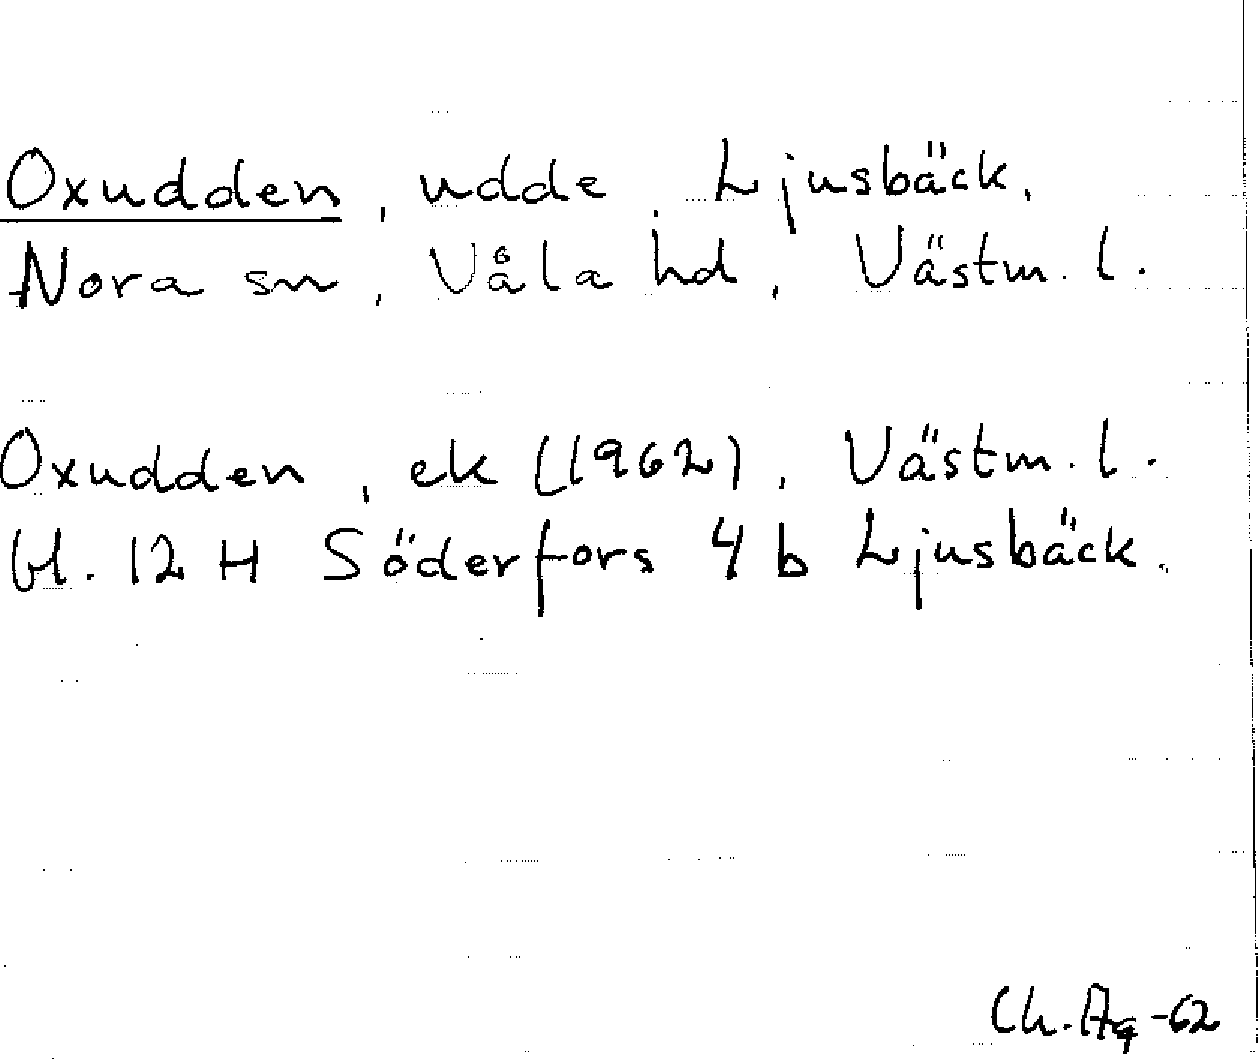 Oxudden, udde Ljusbäck,
Nora sn, Våla hd, Västm. l.
Oxudden, ek (1962), Västm. l.
bl. 12 H Söderfors 4 b Ljusbäck.
Ch. Ag -62